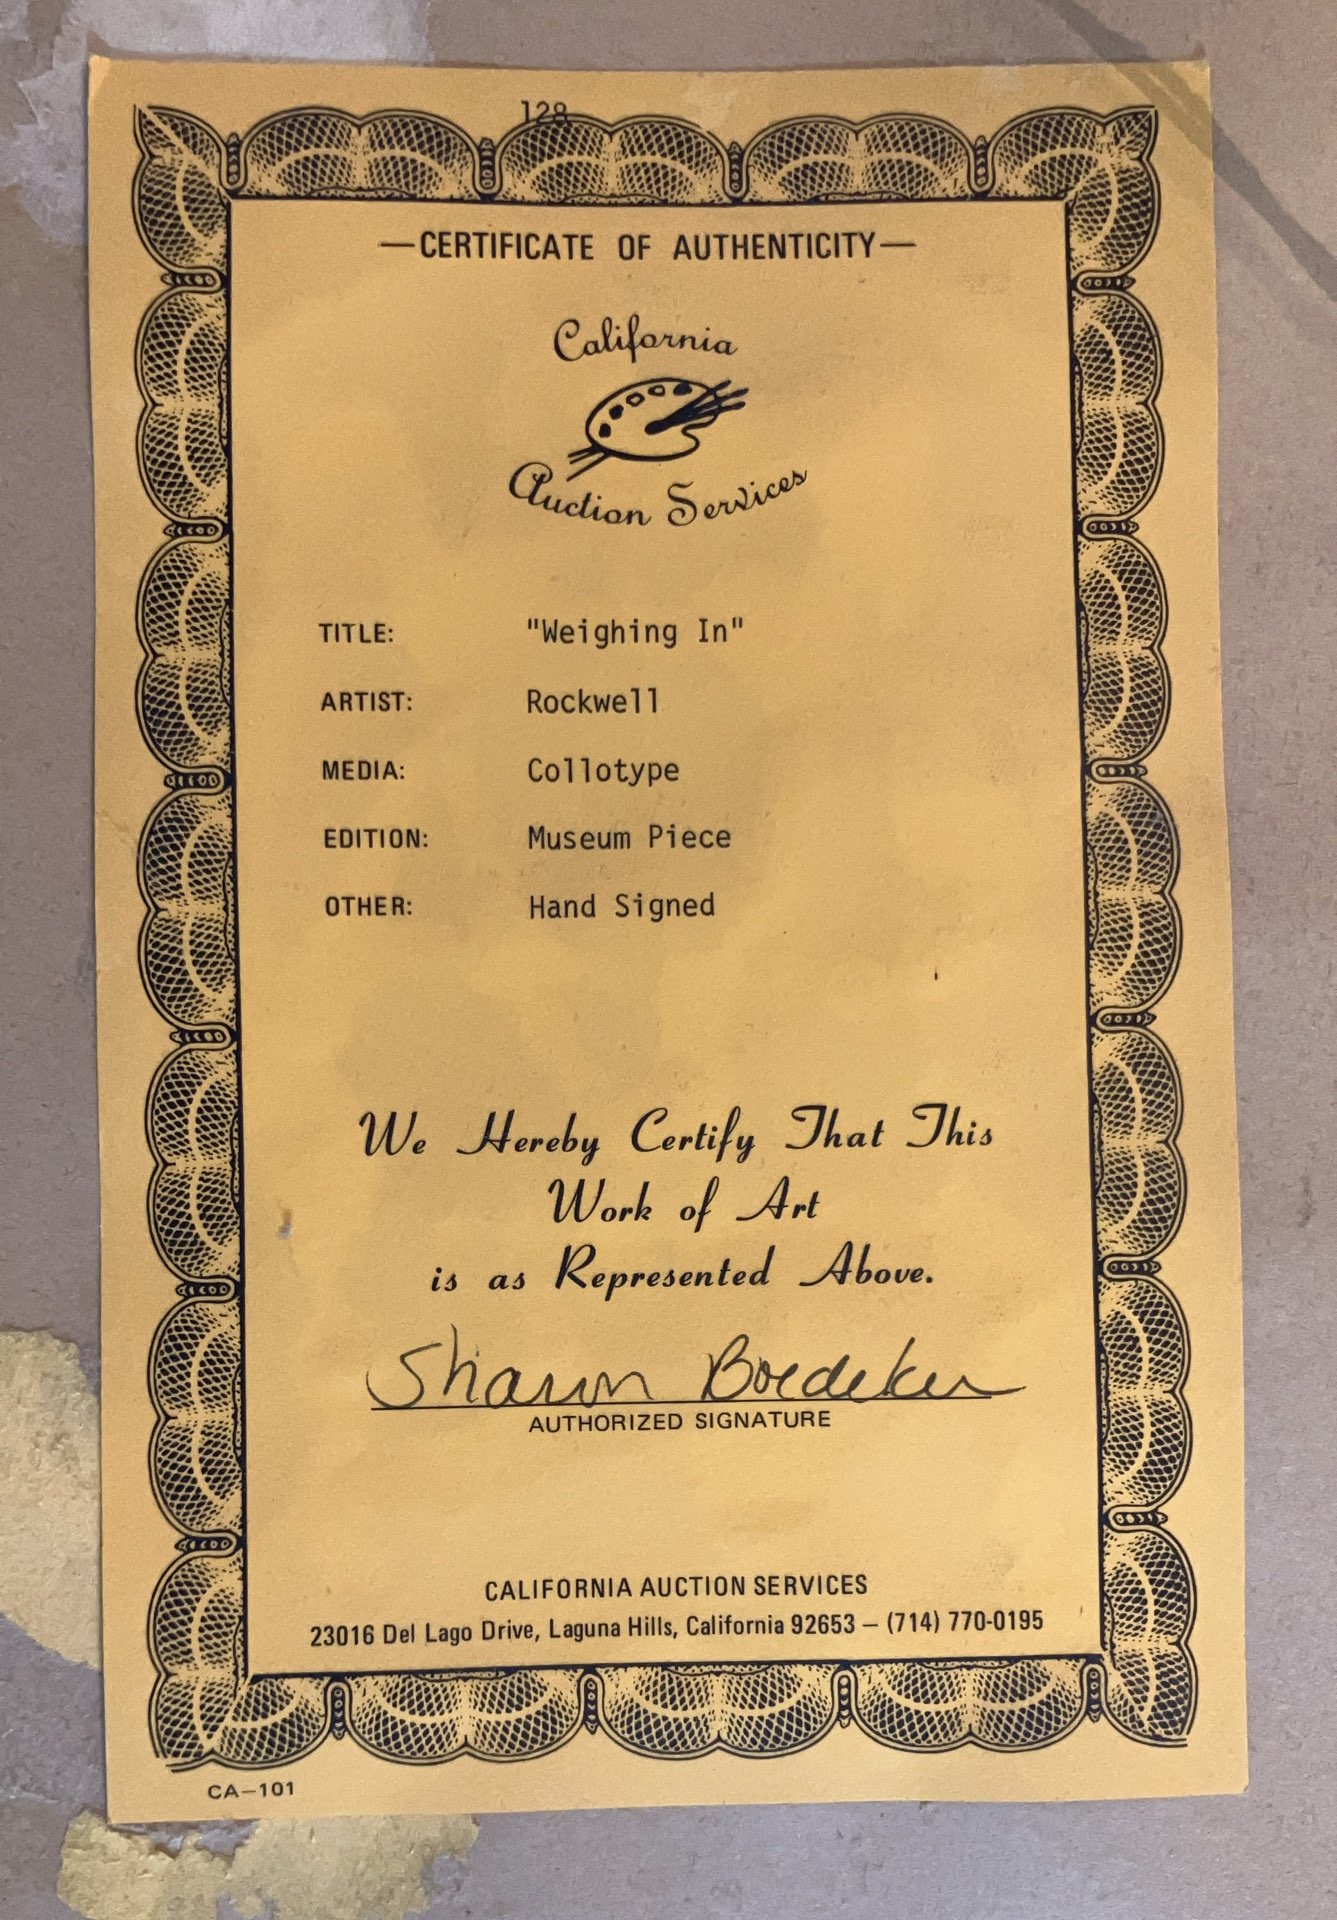 128
—CERTIFICATE OF AUTHENTICITY—
California
Auction Services
TITLE: "Weighing In"
ARTIST: Rockwell
MEDIA: Collotype
EDITION: Museum Piece
OTHER: Hand Signed
We Hereby Certify That This
Work of Art
is as Represented Above.
Sharon Boedeker
AUTHORIZED SIGNATURE
CALIFORNIA AUCTION SERVICES
23016 Del Lago Drive, Laguna Hills, California 92653 — (714) 770-0195
CA—101